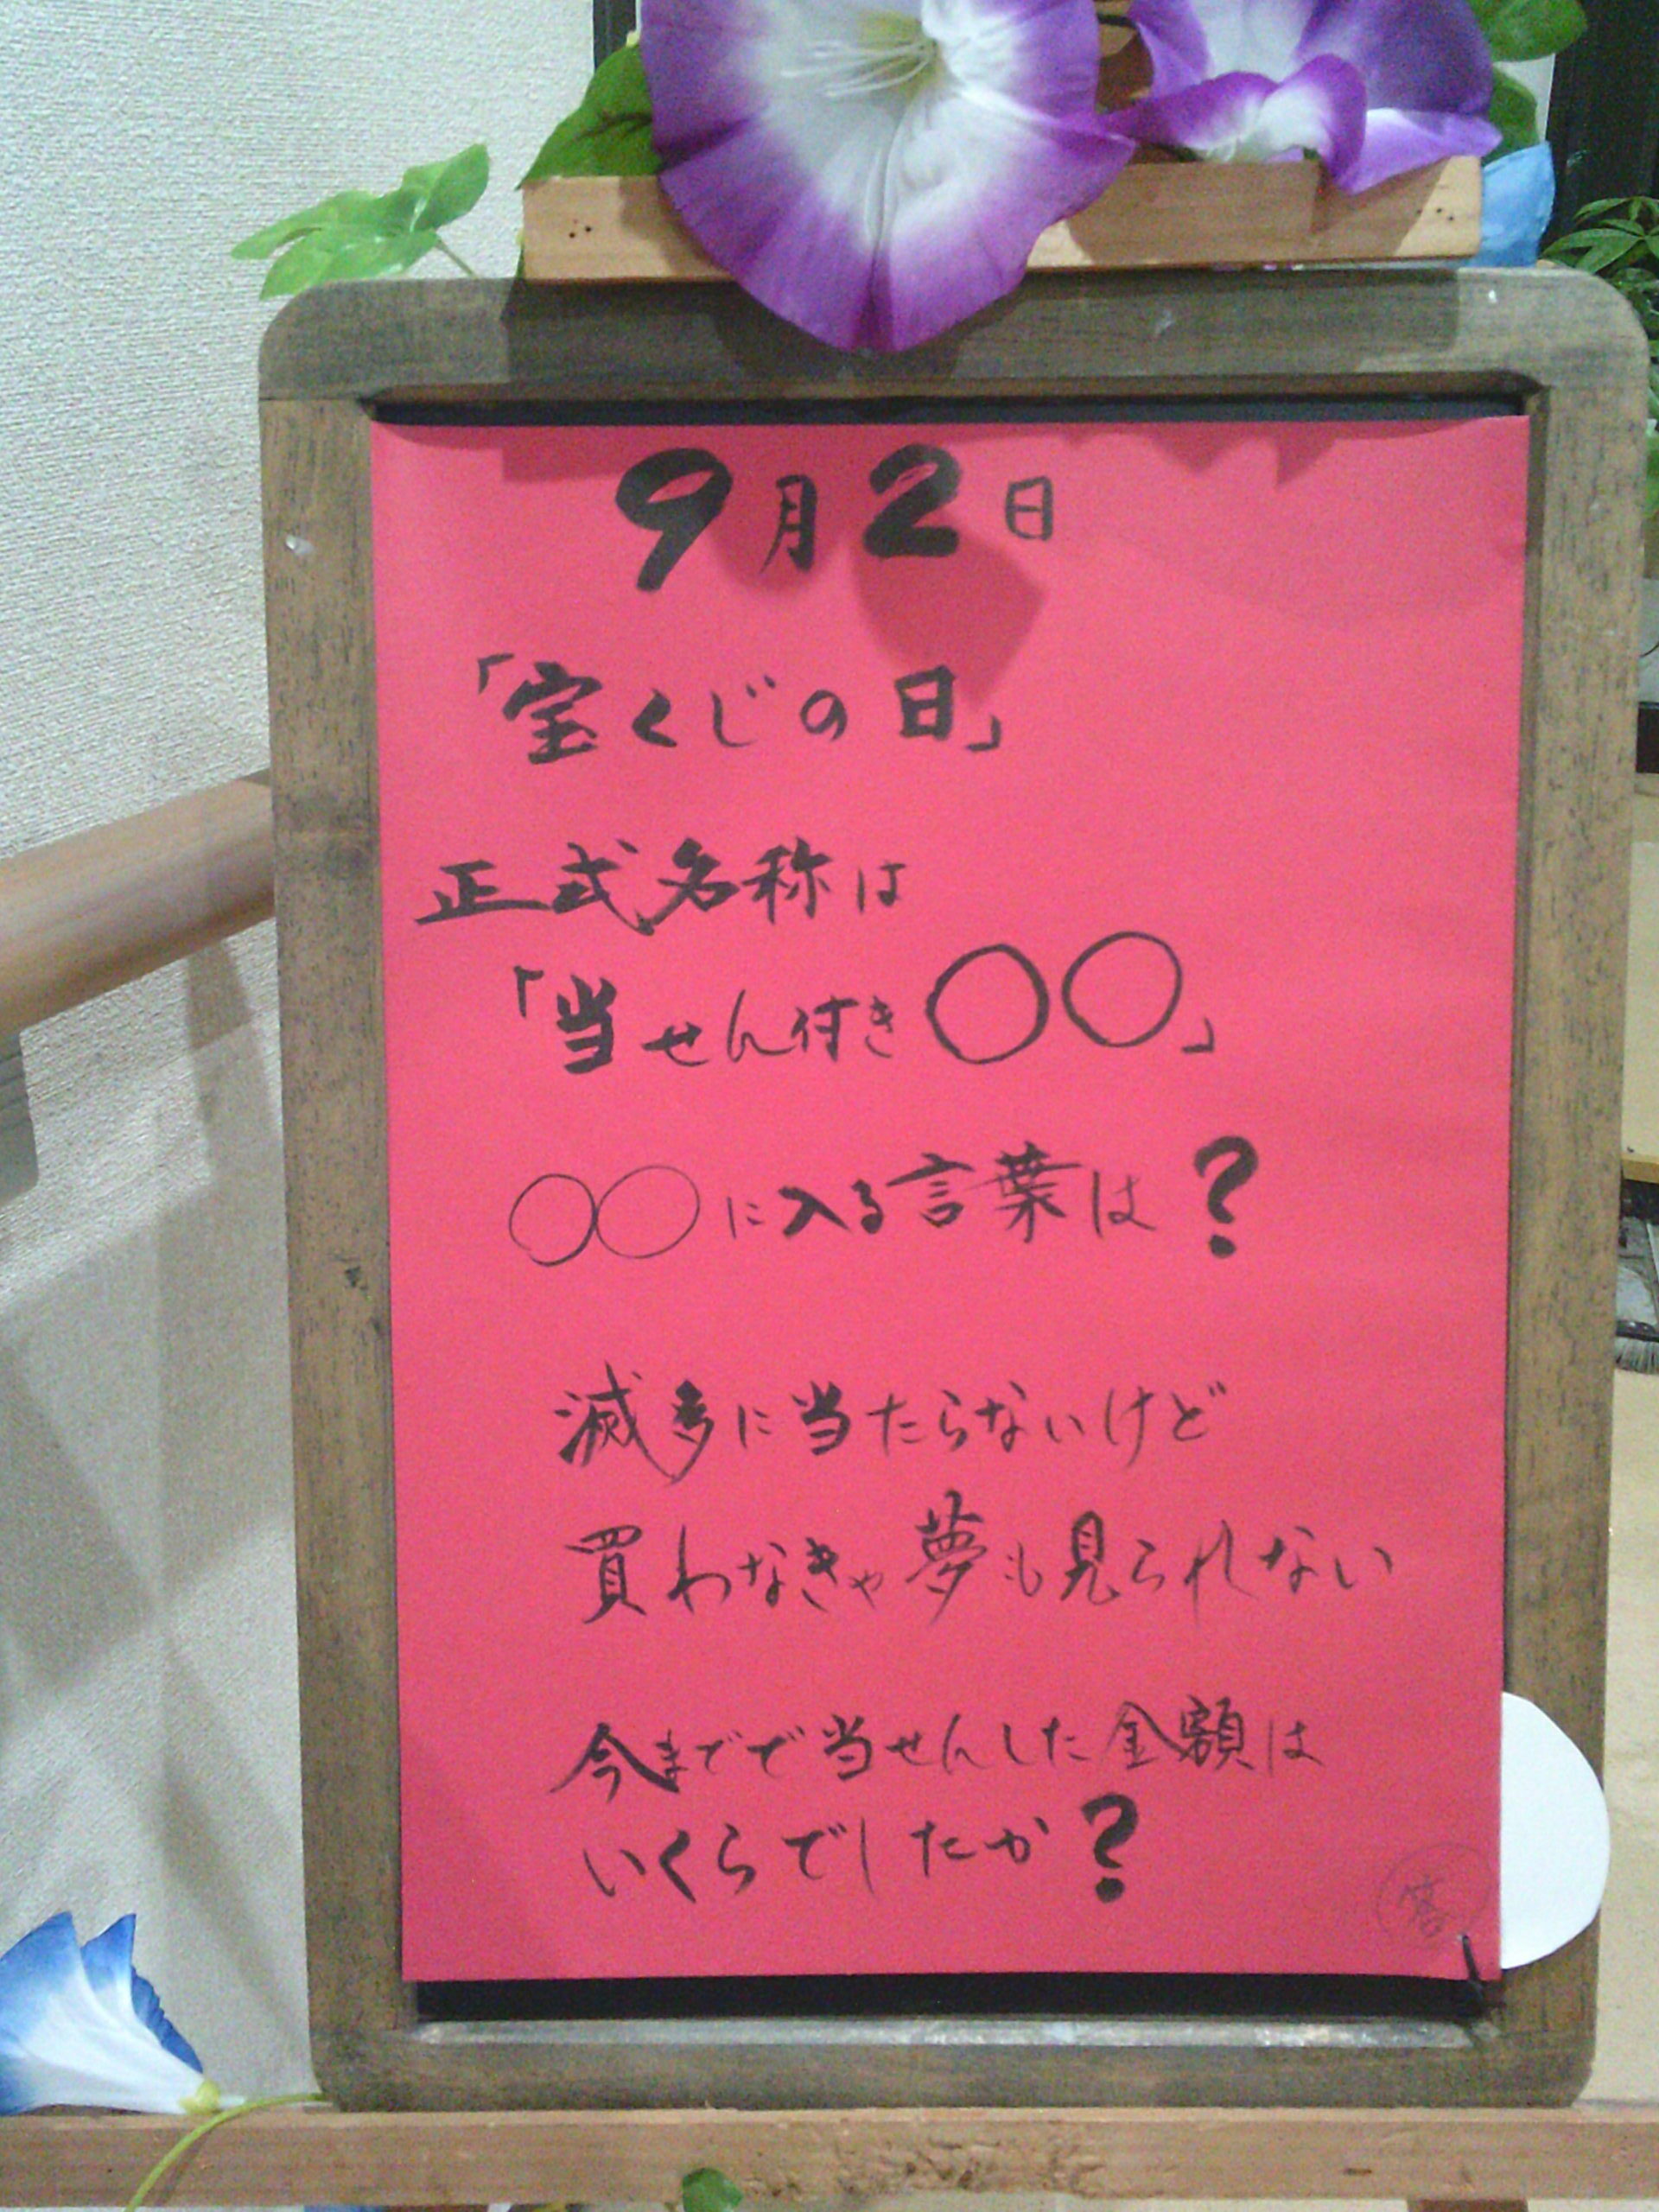 9月2日
「宝くじの日」
正式名称は
「当せん付き〇〇」
〇〇に入る言葉は？
滅多に当たらないけど
買わなきゃ夢も見られない
今までで当せんした金額は
いくらでしたか？
答